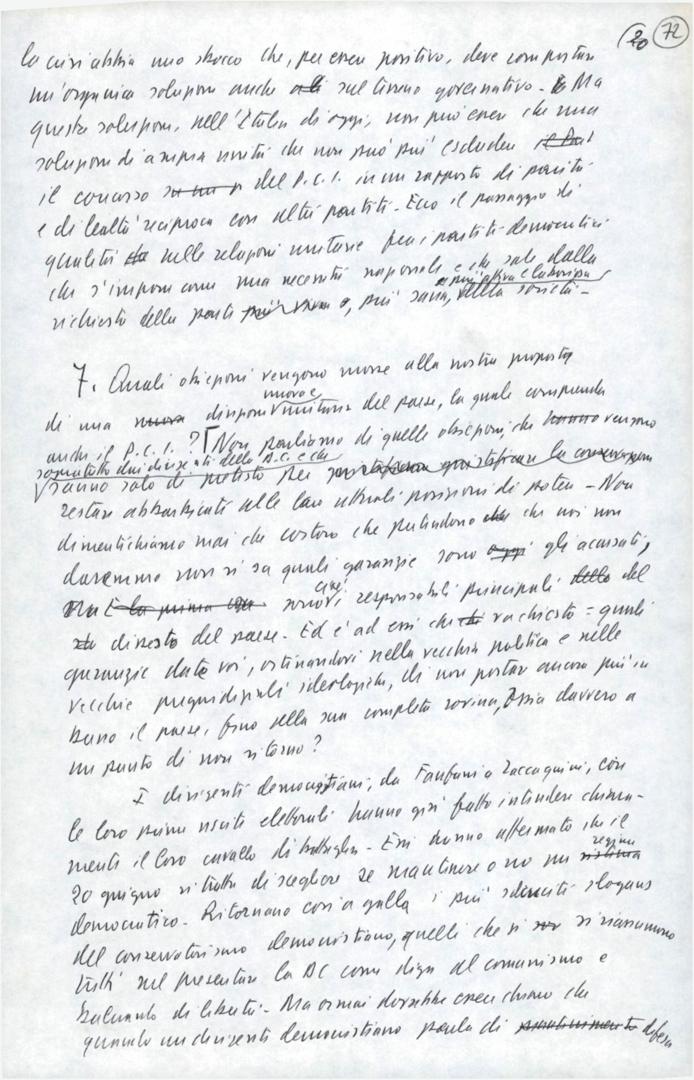 20 72
la crisi abbia uno sbocco che, per essere positivo, deve comportare
un'organica soluzione anche sul terreno governativo. Ma
questa soluzione, nell'Italia di oggi, non può essere che una
soluzione di ampia unità che non può più escludere il Pci
il concorso su un p del P.C.I. in un rapporto di parità
e di lealtà reciproca con altri partiti. Ecco il passaggio di
qualità nelle relazioni unitarie fra i partiti democratici
che s'impone come una necessità nazionale e che sale dalla
e più attiva e laboriosa
richiesta della parte più viva e, più sana, della società.
7. Quali obiezioni vengono mosse alla nostra proposta
nuova e
di una nuova direzione unitaria del paese, la quale comprenda
anche il P.C.I.? Non parliamo di quelle obiezioni, che hanno vengono
soprattutto dai dirigenti della D.C. e che
sanno solo di pretesto per giustificare la conservazione
restare abbarbicati alle loro attuali posizioni di potere. Non
dimentichiamo mai che costoro che pretendono che noi non
daremmo non si sa quali garanzie sono oggi gli accusati,
Ma È la prima cosa sono i responsabili principali della del
dissesto del paese. Ed è ad essi che va chiesto: quali
garanzie date voi, ostinandovi nella vecchia politica e nelle
vecchie pregiudiziali ideologiche, di non portare ancora più in
basso il paese, fino alla sua completa rovina, ossia davvero a
un punto di non ritorno?
I dirigenti democristiani, da Fanfani a Zaccagnini, con
le loro prime uscite elettorali hanno già fatto intendere chiara-
mente il loro cavallo di battaglia. Essi hanno affermato che il
regime
20 giugno si tratta di scegliere se mantenere o no un sistema
democratico. Ritornano così a galla i più sdruciti slogans
del conservatorismo democristiano, quelli che si riassumono
tutti nel presentare la DC come diga al comunismo e
baluardo di libertà. Ma ormai dovrebbe essere chiaro che
quando un dirigente democristiano parla di difesa